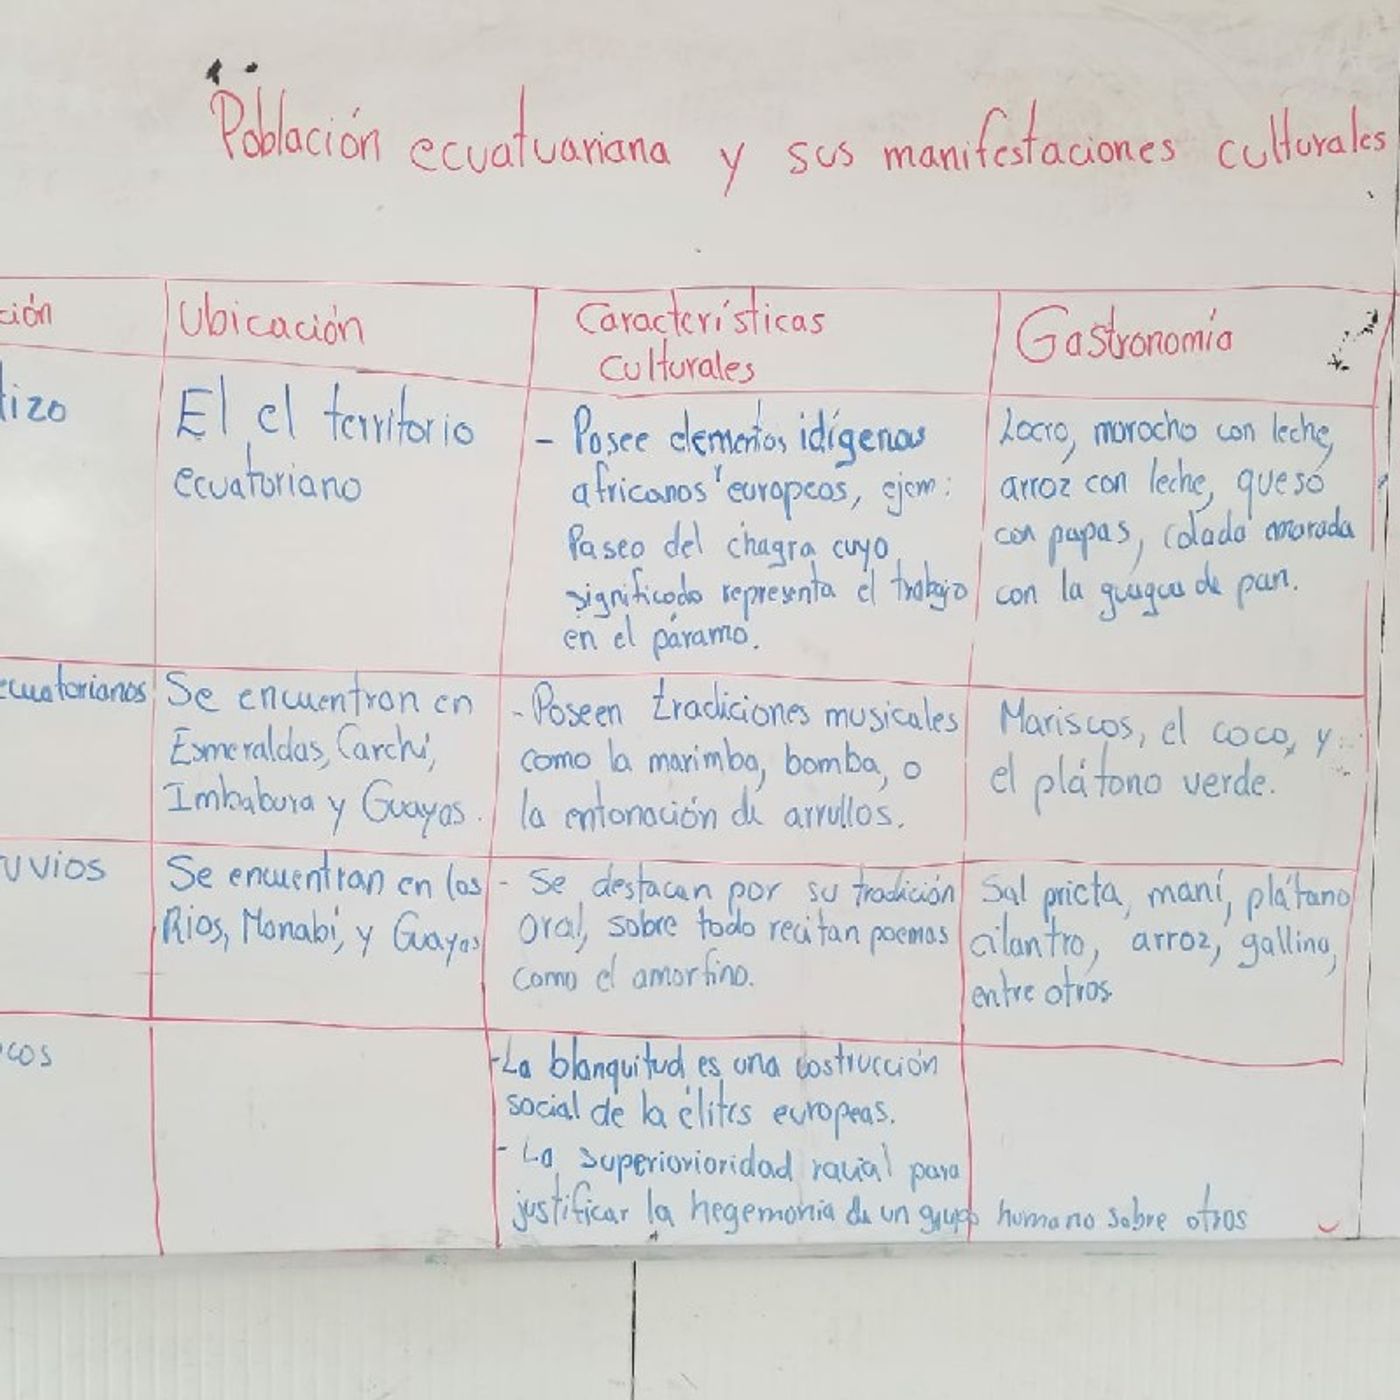 Población ecuatuariana y sus manifestaciones culturales
ción
Ubicación
Características
culturales
Gastronomía
tizo
El el territorio
ecuatoriano
- Posee elementos idígenas
africanos europeos, ejem:
Paseo del chagra cuyo
significado representa el trabajo
en el páramo.
Locro, morocho con leche,
arroz con leche, queso
con papas, colada morada
con la guagua de pan.
ecuatorianos
Se encuentran en
Esmeraldas, Carchi,
Imbabura y Guayas.
- Poseen tradiciones musicales
como la marimba, bomba, o
la entonación de arrullos.
Mariscos, el coco, y
el plátono verde.
uvios
Se encuentran en los
Rios, Manabí, y Guayas
- Se destacan por su tradición
oral, sobre todo recitan poemas
como el amorfino.
Sal pricta, maní, plátano
cilantro, arroz, gallina,
entre otros.
cos
- La blanquitud es una costrucción
social de la élites europeas.
- La superiorioridad racial para
justificar la hegemonia de un grupo humano sobre otros